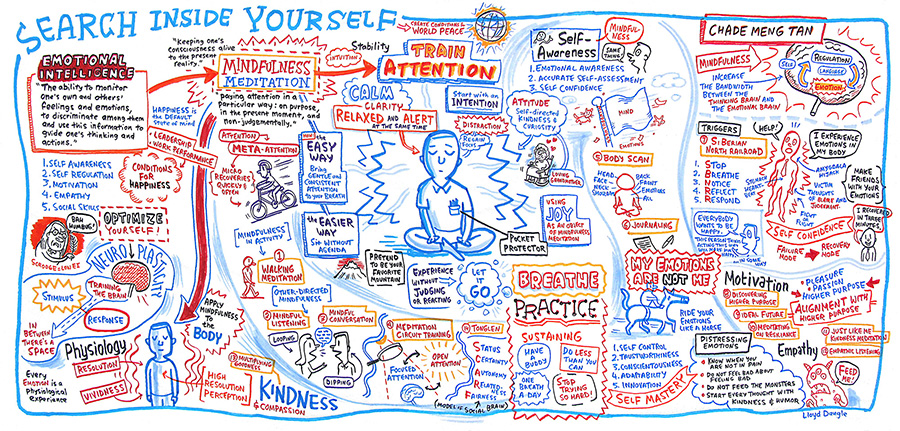 SEARCH INSIDE YOURSELF
EMOTIONAL
INTELLIGENCE
"The ability to monitor
one's own and others'
feelings and emotions,
to discriminate among them
and use this information to
guide one's thinking and
actions."
1. SELF AWARENESS
2. SELF REGULATION
3. MOTIVATION
4. EMPATHY
5. SOCIAL SKILLS
BAH
HUMBUG!
OPTIMIZE
YOURSELF!
NEURO PLASTICITY
TRAINING
THE BRAIN
STIMULUS
RESPONSE
IN
BETWEEN
THERE'S A
SPACE
Physiology
RESOLUTION
VIVIDNESS
Every
Emotion is a
physiological
experience
HIGH
RESOLUTION
PERCEPTION
APPLY
MINDFULNESS
to the
BODY
"Keeping one's
consciousness alive
to the present
reality."
MINDFULNESS
MEDITATION
paying attention in a
particular way: on purpose,
in the present moment, and
non-judgementally."
HAPPINESS is
the DEFAULT
state of mind
LEADERSHIP
WORK PERFORMANCE
CONDITIONS
FOR
HAPPINESS
ATTENTION
META-ATTENTION
MICRO
RECOVERIES
QUICKLY &
OFTEN
MINDFULNESS
IN ACTIVITY
① WALKING
MEDITATION
OTHER-DIRECTED
MINDFULNESS
② MINDFUL
LISTENING
③ MINDFUL
CONVERSATION
LOOPING
DIPPING
MULTIPLYING
GOODNESS
KINDNESS
+ COMPASSION
the EASY
WAY
Bring
GENTLE and
CONSISTENT
ATTENTION
to YOUR BREATH
the EASIER
WAY
Sit WITHOUT
AGENDA
PRETEND TO BE
YOUR FAVORITE
MOUNTAIN
Stability
INTUITION
CREATE CONDITIONS for
WORLD PEACE
TRAIN
ATTENTION
CALM
CLARITY
RELAXED and ALERT
AT THE SAME TIME
Start with an
INTENTION
DISTRACTION
REGAIN
FOCUS
POCKET
PROTECTOR
EXPERIENCE
WITHOUT
JUDGING
OR REACTING
LET
IT
GO
④ MEDITATION
CIRCUIT TRAINING
FOCUSED
ATTENTION
OPEN
ATTENTION
TONGLEN
STATUS
CERTAINTY
AUTONOMY
RELATED-
FAIRNESS
(MODEL of SOCIAL BRAIN)
Self-
Awareness
MINDFUL-
NESS
SAME
THING
1. EMOTIONAL AWARENESS
2. ACCURATE SELF-ASSESSMENT
3. SELF CONFIDENCE
Attitude
self-directed
KINDNESS
CURIOSITY
MIND
EMOTIONS
LOVING
GRANDMOTHER
USING
JOY
AS AN OBJECT
OF MINDFULNESS
MEDITATION
⑤ BODY SCAN
HEAD
FACE
NECK
SHOULDERS
BACK
FRONT
EMOTIONS
ALL
⑥ JOURNALING
MY EMOTIONS
ARE NOT ME
RIDE YOUR
EMOTIONS
LIKE A HORSE
BREATHE
PRACTICE
SUSTAINING
HAVE
a
BUDDY
DO LESS
THAN YOU
CAN
ONE
BREATH
A DAY
STOP
TRYING
SO HARD!
1. SELF CONTROL
2. TRUSTWORTHINESS
3. CONSCIENTIOUSNESS
4. ADAPTABILITY
5. INNOVATION
SELF MASTERY
CHADE MENG TAN
MINDFULNESS
INCREASE
THE BANDWIDTH
BETWEEN the
THINKING BRAIN and
the EMOTIONAL BRAIN
SELF
REGULATION
LANGUAGE
EMOTION
TRIGGERS
HELP!
⑦ SIBERIAN
NORTH RAILROAD
1. STOP
2. BREATHE
3. NOTICE
4. REFLECT
5. RESPOND
I EXPERIENCE
EMOTIONS IN
MY BODY
AMYGDALA
HIJACK
VICTIM
THOUGHTS
OF BLAME and
JUDGEMENT
FIGHT OR
FLIGHT
MAKE
FRIENDS WITH
YOUR EMOTIONS
I RECOVERED
IN THREE
MINUTES.
EVERYBODY
WANTS TO BE
HAPPY.
SELF CONFIDENCE
FAILURE
MODE
RECOVERY
MODE
Motivation
PLEASURE
PASSION
HIGHER PURPOSE
ALIGNMENT WITH
HIGHER
PURPOSE
⑧ DISCOVERING
HIGHER PURPOSE
⑨ IDEAL FUTURE
⑩ MEDITATION
on RESILIENCE
⑪ JUST LIKE ME
KINDNESS MEDITATION
⑫ EMPATHIC LISTENING
Empathy
DISTRESSING
EMOTIONS
• KNOW WHEN YOU
ARE NOT IN PAIN
• DO NOT FEEL BAD ABOUT
FEELING BAD
• DO NOT FEED THE MONSTERS
• START EVERY THOUGHT WITH
KINDNESS & HUMOR
FEED
ME!
Lloyd Dangle